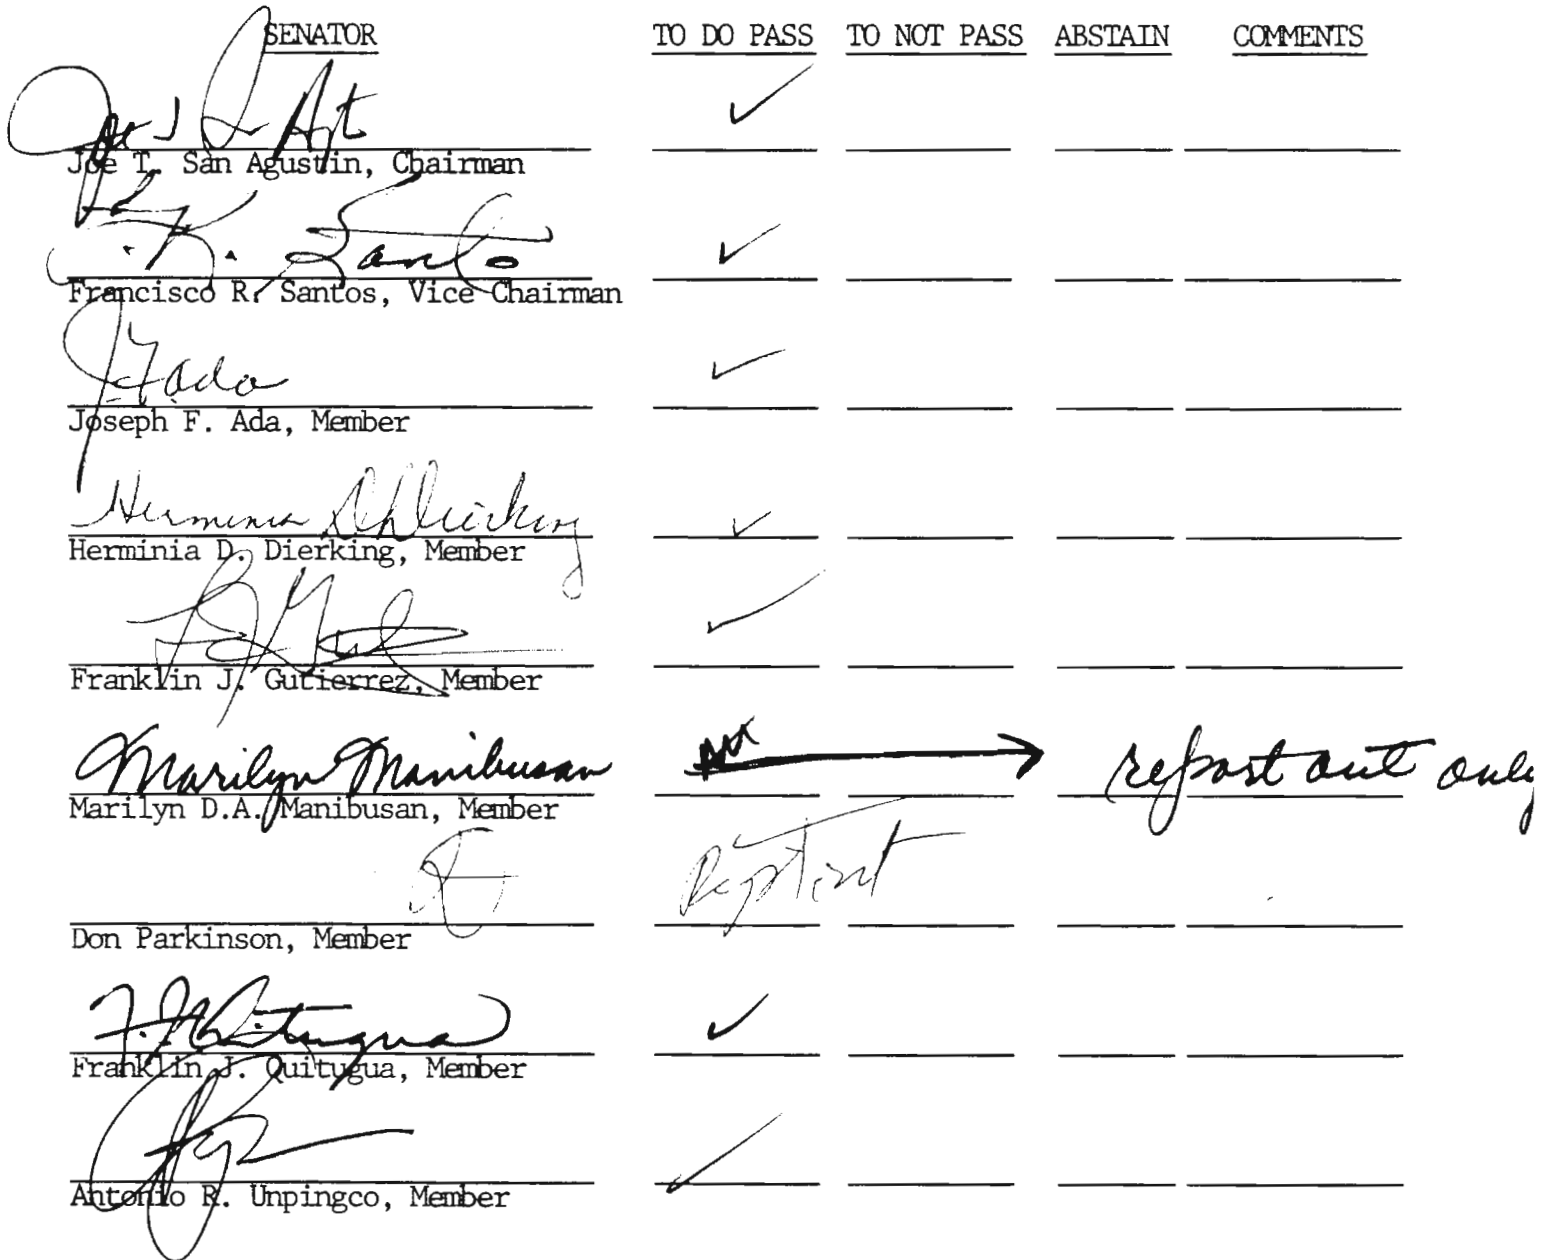 SENATOR TO DO PASS TO NOT PASS ABSTAIN COMMENTS
Joe T. San Agustin, Chairman
F. R. Santos
Francisco R. Santos, Vice Chairman
J F Ada
Joseph F. Ada, Member
Herminia D. Dierking
Herminia D. Dierking, Member
Franklin J. Gutierrez, Member
Marilyn Manibusan report out only
Marilyn D.A. Manibusan, Member
Don Parkinson, Member
F. J. Quitugua
Franklin J. Quitugua, Member
Antonio R. Unpingco, Member